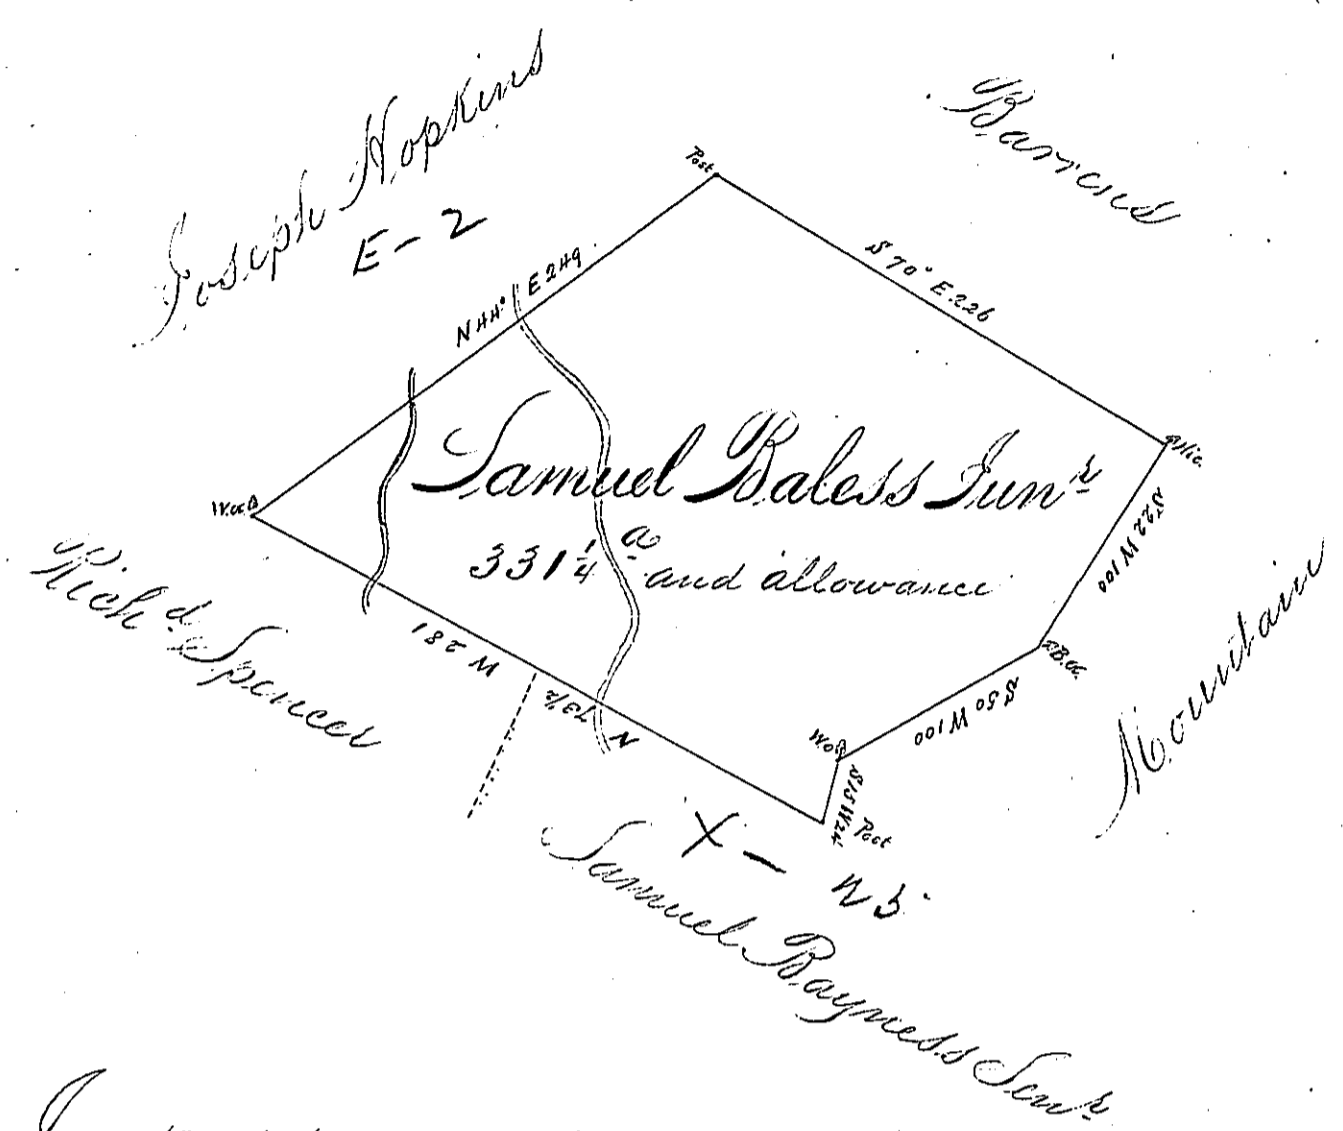 Joseph Hopkins
E-2
Barrens
Post
N 44° E 249
S 70° E. 226
W. O.
Hic.
Samuel Baless Junr
331 1/4 a and allowance
S 22 W 100
Richd Spencer
N 73 1/2 W 281
B.O.
S 50 W 100
Mountain
W.O.
S 15 W 24
Post
X -
Samuel Bayness Senr